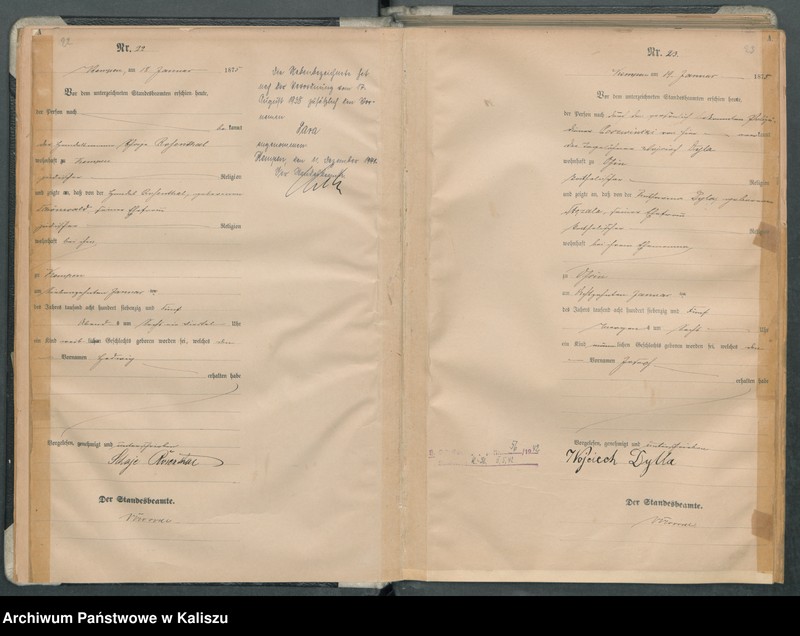 92
Nr. 22
Kempen, am 18 Januar 1875
Vor dem unterzeichneten Standesbeamten erschien heute,
der Person nach
bekannt
der Handelsmann Schaje Rosenthal
wohnhaft zu Kempen
jüdischer Religion
und zeigte an, daß von der Hendel Rosenthal, geborenen
Grünwald, seiner Ehefrau
jüdischer Religion
wohnhaft bei ihm
zu Kempen
am siebenzehnten Januar
des Jahres tausend acht hundert siebenzig und fünf
Abend s um sechs ein viertel Uhr
ein Kind weiblichen Geschlechts geboren worden sei, welches den
Vornamen Hedwig
erhalten habe
Vorgelesen, genehmigt und unterschrieben
Schaje Rosenthal
Der Standesbeamte.
Die Nebenbezeichnete hat
auf der Verordnung vom 17.
August 1938 zusätzlich den Vor-
namen
Sara
angenommen
Kempen, den 11. Dezember 1941.
Der Standesbeamte
Nr. 23.
Kempen am 19. Januar 1875
Vor dem unterzeichneten Standesbeamten erschien heute,
der Person nach durch den persönlich bekannten
bekannt
der Tagelöhner Wojciech Dylla
wohnhaft zu Osin
katholischer Religion
und zeigte an, daß von der Katharina Dylla, geborenen
seiner Ehefrau
katholischer Religion
wohnhaft bei ihrem Ehemanne
zu Osin
am achtzehnten Januar
des Jahres tausend acht hundert siebenzig und fünf
Morgen s um sechs Uhr
ein Kind männlichen Geschlechts geboren worden sei, welches den
Vornamen Joseph
erhalten habe
Vorgelesen, genehmigt und unterschrieben
Wojciech Dylla
Der Standesbeamte.
Archiwum Państwowe w Kaliszu